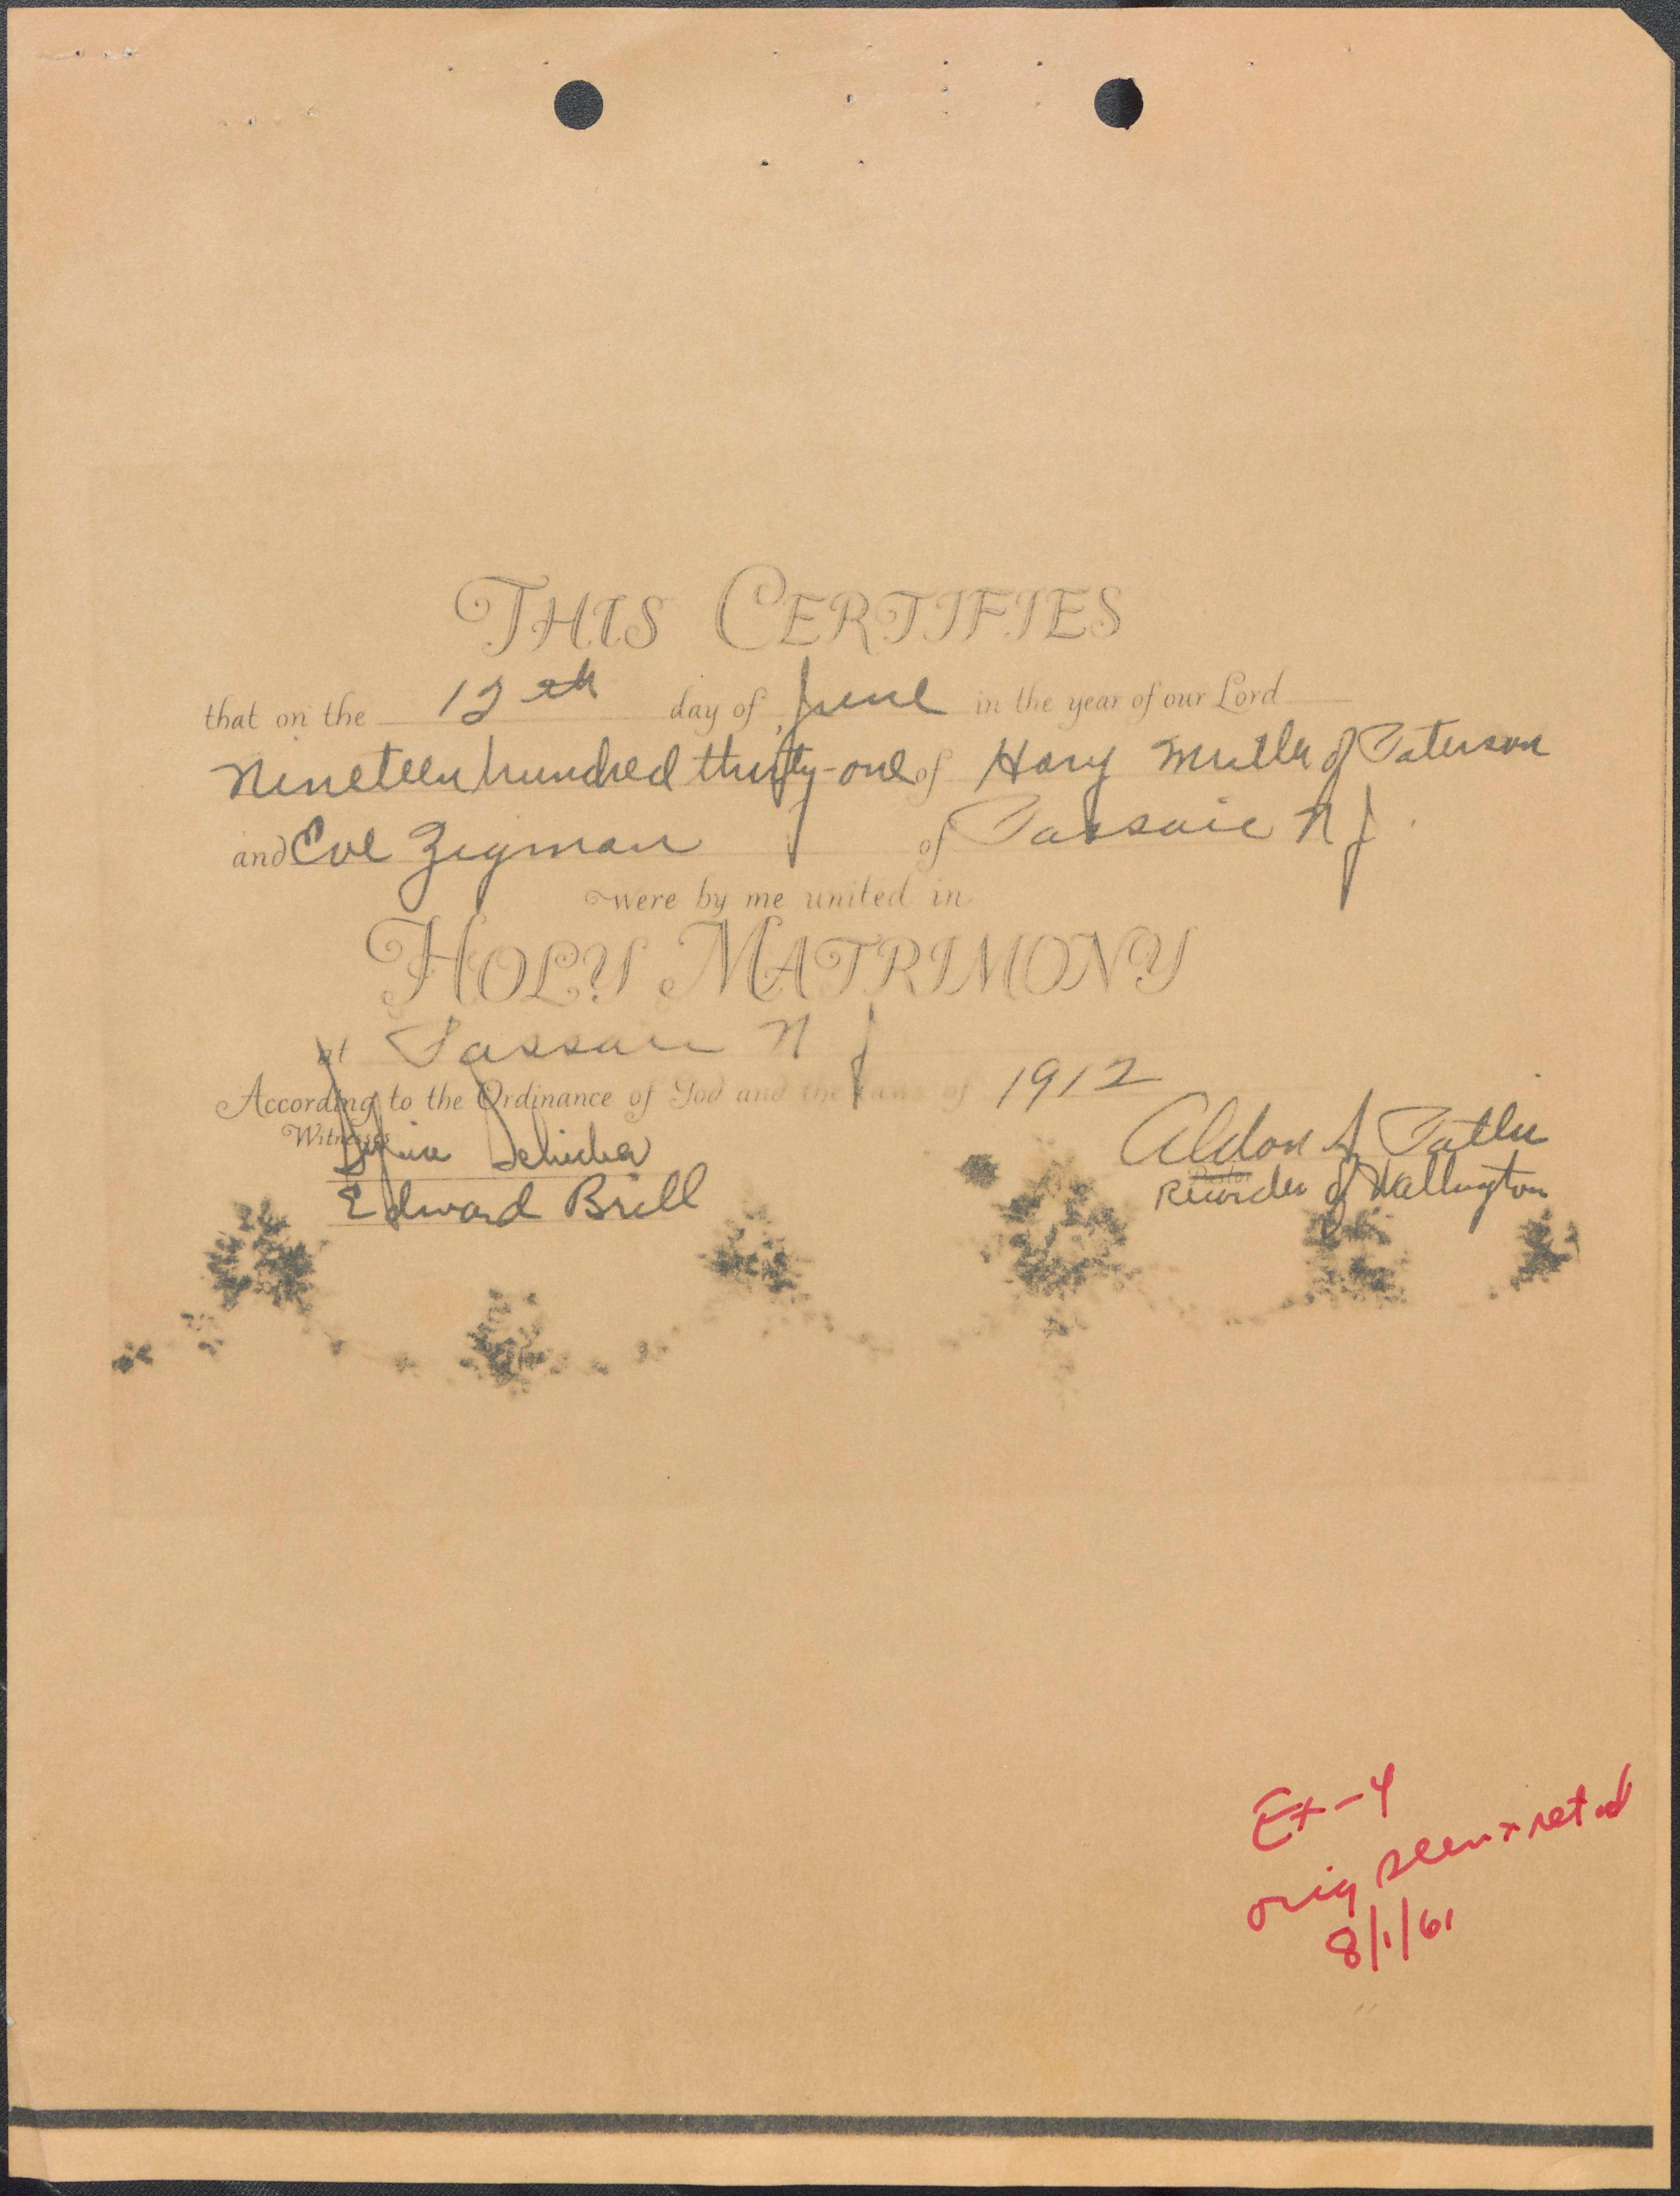 THIS CERTIFIES
that on the 12th day of June in the year of our Lord
Nineteen hundred thirty-one of Harry Muller of Paterson
and Eve Zigman of Passaic N J
were by me united in
HOLY MATRIMONY
at Passaic N J
According to the Ordinance of God and the Laws of 1912
Witnesses
Edward Brill
Aldon
Recorder of Wallington
Ex-4
orig seen & retd
8/1/61